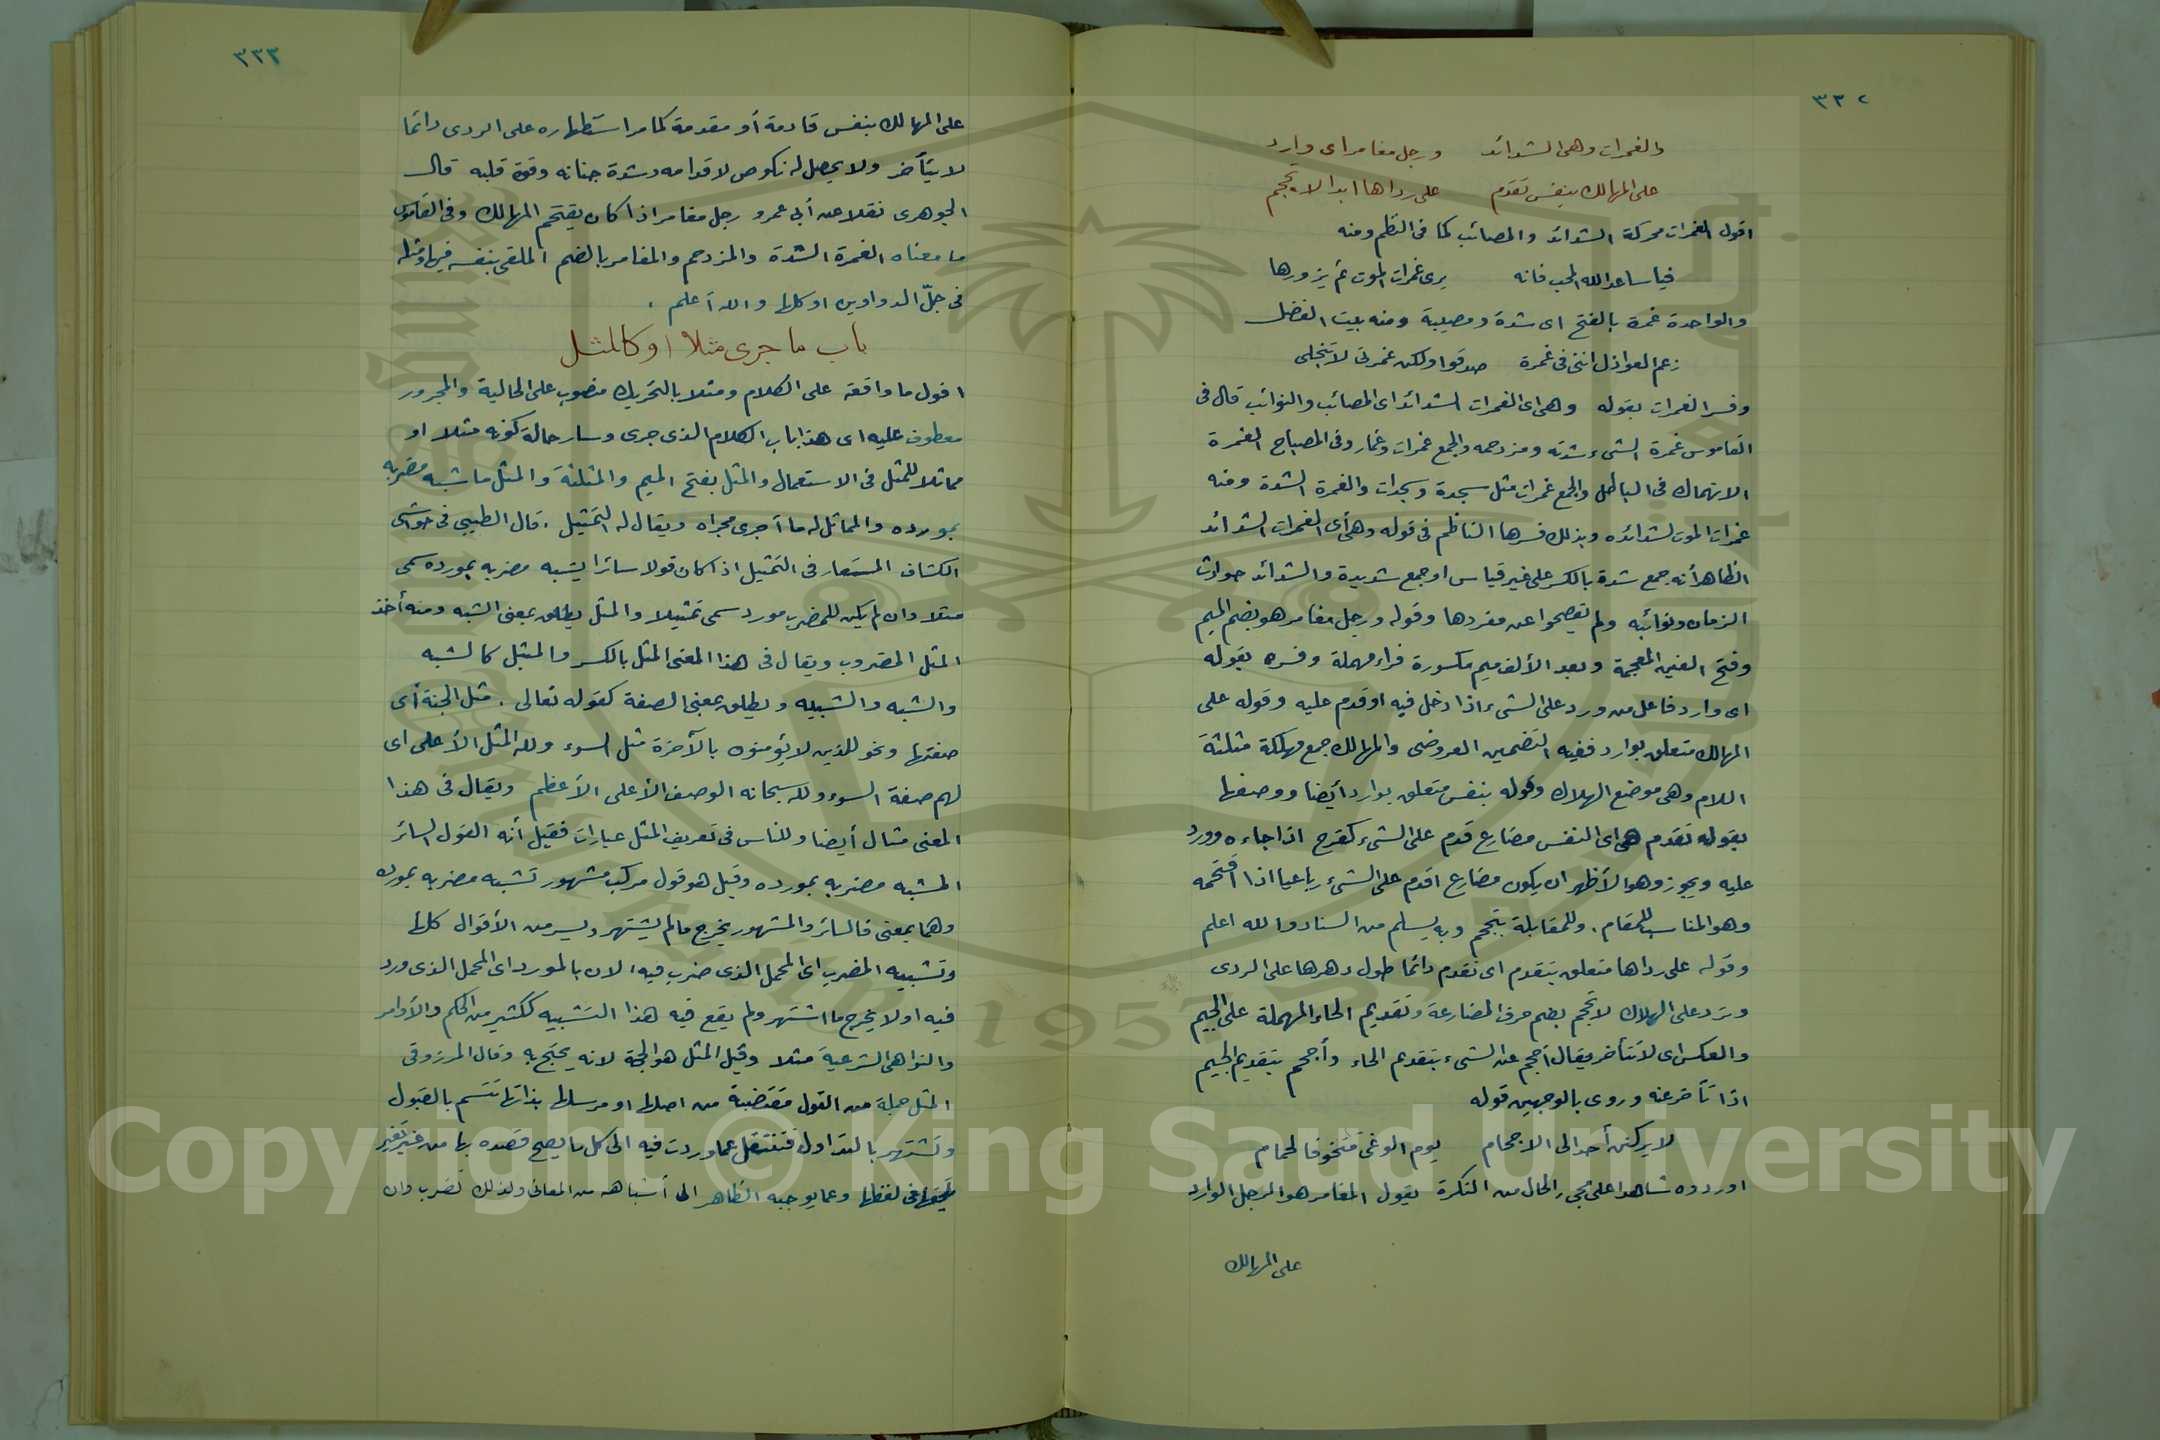 ٣٣٢
والغمرات وهى الشدائد ورجل مغامر اى وارد
على المهالك بنفس تقدم على رداها ابدا لا تحجم
اقول الغمرات محركة الشدائد والمصائب كما فى النظم ومنه
فيا ساعد الله المحب فانه يرى غمرات الموت ثم يزورها
والواحدة غمرة بالفتح اى شدة ومصيبة ومنه بيت الفضل
زعم العواذل اننى فى غمرة صدقوا ولكن غمرتى لا تنجلى
وفسر الغمرات بقوله وهى اى الغمرات الشدائد اى المصائب والنوائب قال فى
القاموس غمرة الشىء شدته ومزدحمه والجمع غمرات وغمار وفى المصباح الغمرة
الانهماك فى الباطل والجمع غمرات مثل سجدة وسجدات والغمرة الشدة ومنه
غمرات الموت لشدائده وبذلك فسرها الناظم فى قوله وهى أى الغمرات الشدائد
الظاهر أنه جمع شدة بالكسر على غير قياس او جمع شديدة والشدائد حوادث
الزمان ونوائبه ولم يفصحوا عن مفردها وقوله ورجل مغامر هو بضم الميم
وفتح الغين المعجمة وبعد الألف ميم مكسورة فراء مهملة وفسره بقوله
اى وارد فاعل من ورد على الشىء اذا دخل فيه او قدم عليه وقوله على
المهالك متعلق بوارد ففيه التضمين العروضى والمهالك جمع مهلكة مثلثة
اللام وهى موضع الهلاك وقوله بنفس متعلق بوارد أيضا ووصفها
بقوله تقدم هى اى النفس مضارع قدم على الشىء كفرح اذا جاءه وورد
عليه ويجوز وهو الأظهر ان يكون مضارع اقدم على الشىء رباعيا اذا اقتحمه
وهو المناسب للمقام . وللمقابلة بتحجم وبه يسلم من السناد والله اعلم
وقوله على رداها متعلق بتقدم اى تقدم دائما طول دهرها على الردى
وترد على الهلاك لا تحجم بضم حرف المضارعة وتقديم الحاء المهملة على الجيم
والعكس اى لا تتأخر يقال أحجم عن الشىء بتقديم الحاء وأجحم بتقديم الجيم
اذا تأخر عنه وروى بالوجهين قوله
لا يركنن أحد الى الاحجام يوم الوغى متخوفا لحمام
اوردوه شاهدا على مجىء الحال من النكرة يقول المغامر هو الرجل الوارد
على المهالك
٣٣٣
على المهالك بنفس قادمة أو مقدمة كما مر استظهاره على الردى دائما
لا يتأخر ولا يحصل له نكوص لاقدامه وشدة جنانه وقوة قلبه قال
الجوهرى نقلا عن أبى عمرو رجل مغامر اذا كان يقتحم المهالك وفى القاموس
ما معناه الغمرة الشدة والمزدحم والمغامر بالضم الملقى بنفسه فيها ومثله
فى جلّ الدواوين او كلها والله أعلم .
باب ما جرى مثلا او كالمثل
اقول ما واقعة على الكلام ومثلا بالتحريك منصوب على الحالية والمجرور
معطوف عليه اى هذا باب الكلام الذى جرى وسار حالة كونه مثلا او
مماثلا للمثل فى الاستعمال والمثل بفتح الميم والمثلثة والمثل ما شبه مضربه
بمورده والمماثل له ما أجرى مجراه ويقال له التمثيل . قال الطيبى فى حواشى
الكشاف المستعار فى التمثيل اذا كان قولا سائرا يشبه مضربه بمورده سمى
مثلا وان لم يكن للمضرب مورد سمى تمثيلا والمثل يطلق بمعنى الشبه ومنه أخذ
المثل المضروب ويقال فى هذا المعنى المثل بالكسر والمثيل كالشبه
والشبه والشبيه ويطلق بمعنى الصفة كقوله تعالى . مثل الجنة أى
صفتها ونحو للذين لا يؤمنون بالآخرة مثل السوء ولله المثل الأعلى اى
لهم صفة السوء ولله سبحانه الوصف الأعلى الأعظم ويقال فى هذا
المعنى مثال أيضا وللناس فى تعريف المثل عبارات فقيل أنه القول السائر
المشبه مضربه بمورده وقيل هو قول مركب مشهور تشبه مضربه بمورده
وهما بمعنى فالسائر والمشهور يخرج ما لم يشتهر ويسر من الأقوال كلها
وتشبيه المضرب اى المحمل الذى ضرب فيه الان بالمورد اى المحمل الذى ورد
فيه اولا يخرج ما اشتهر ولم يقع فيه هذا التشبيه ككثير من الحكم والأوامر
والنواهى الشرعية مثلا وقيل المثل هو الحجة لانه يحتج به وقال المرزوقى
المثل جملة من القول مقتضبة من اصلها او مرسلها بذاتها تتسم بالقبول
وتشتهر بالتداول فتنتقل عما وردت فيه الى كل ما يصح قصده بها من غير تغيير
يلحقها فى لفظها وعما يوجبه الظاهر الى أشباهه من المعانى ولذلك تضرب وان
1957
Copyright © King Saud University